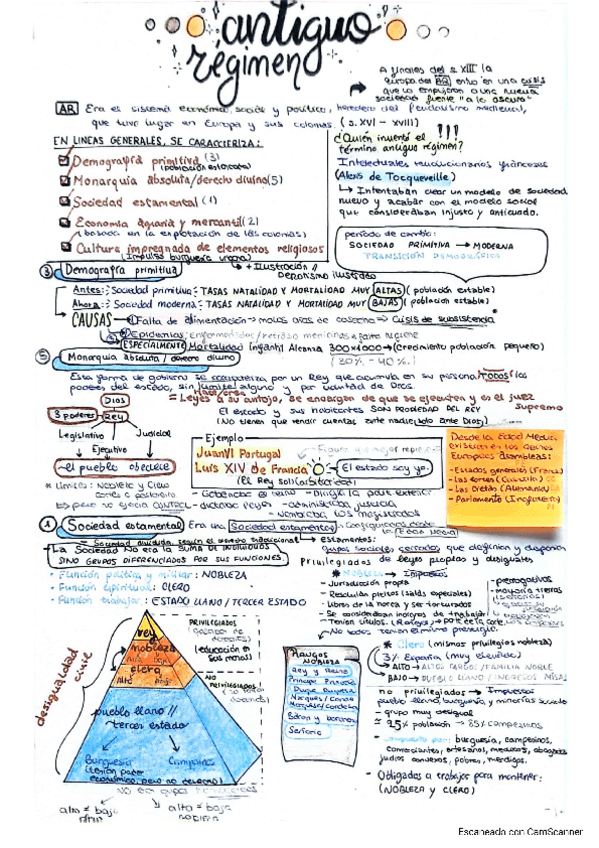 antiguo
régimen
A finales del s. XIII la
europa del AR entró en una crisis
que la empujaron a una nueva
sociedad frente "a lo oscuro"
AR Era es sistema económico, social y político, heredero del feudalismo medieval,
que tuvo lugar en Europa y sus colonias. (s. XVI - XVIII)
EN LINEAS GENERALES, SE CARACTERIZA:
Demografía primitiva (3)
(población estancada)
Monarquía absoluta/derecho divino (5)
Sociedad estamental (1)
Economía agraria y mercantil (2)
(basada en la explotación de las colonias)
Cultura impregnada de elementos religiosos
(Impulso burguesía urbana)
+ Ilustración //
Despotismo ilustrado
¿Quién inventó el
término antiguo régimen? !!!
Intelectuales revolucionarios franceses
(Alexis de Tocqueville)
↳ Intentaban crear un modelo de sociedad
nuevo y acabar con el modelo social
que consideraban injusto y anticuado.
período de cambio:
SOCIEDAD PRIMITIVA → MODERNA
TRANSICIÓN DEMOGRÁFICA
3 Demografía primitiva
Antes: Sociedad primitiva: TASAS NATALIDAD Y MORTALIDAD MUY ALTAS (población estable)
Ahora: Sociedad moderna: TASAS NATALIDAD Y MORTALIDAD MUY BAJAS (población estable)
CAUSAS Falta de alimentación → malas años de cosecha → Crisis de subsistencia
Epidemias, Enfermedades/retraso medicinas e falta higiene
ESPECIALMENTE Mortalidad infantil Alcanza 300x1000 → (crecimiento población pequeño)
(30% - 40%)
5 Monarquía absoluta / derecho divino
Esta forma de gobierno se caracteriza por un Rey que acumula en su persona TODOS los
poderes del estado, sin límite alguno y por voluntad de Dios.
= Leyes a su antojo, se encargan de que se ejecuten y es el juez
supremo
El estado y sus habitantes SON PROPIEDAD DEL REY
(No tienen que rendir cuentas ante nadie, solo ante Dios)
DIOS
3 poderes REY
Legislativo
Judicial
Ejecutivo
el pueblo obedece
* Límites: Nobleza y Clero
Ejemplo
Juan VI Portugal
Luis XIV de Francia
El estado soy yo.
(El Rey sol)
- Gobernaba el reino
- Dirigía la polít. exterior
- dictaba leyes
- administraba justicia
- Nombraba los magistrados
Desde la Edad Media
existían en los países
Europeos asambleas:
- Estados generales (Francia)
- Las cortes (Castilla)
- Las Dietas (Alemania)
- Parlamento (Inglaterra)
1 Sociedad estamental Era una Sociedad estamental, configurada desde
la Edad Media
= Sociedad dividida según el modelo tradicional → Estamentos:
- La Sociedad No era la SUMA DE INDIVIDUOS
SINO GRUPOS DIFERENCIADOS POR SUS FUNCIONES.
grupos sociales cerrados que
Privilegiados de leyes propias y desiguales
· Función política y militar: NOBLEZA
· Función espiritual: CLERO
· Función trabajar: ESTADO LLANO / TERCER ESTADO
* NOBLEZA → Impuestos
- Jurisdicción propia
- Libres de la horca y ser torturados
- Se consideraban indignos de trabajar
- Tenían títulos. (Rangos)
- No todos tenían el mismo prestigio.
- prerrogativas
- mayoría tierras
desigualdad
civil
rey
nobleza
Alta Baja
clero
Alto Bajo
pueblo llano //
tercer estado
Burguesía
Campesinos
(tenían poder
económico, pero no derecho)
PRIVILEGIADOS
(educación en
sus manos)
NO
PRIVILEGIADOS
RANGOS
NOBLEZA
Rey y Reina
Príncipe Princesa
Duque Duquesa
Barón y baronesa
Señorío
* Clero (mismos privilegios nobleza)
3% España (muy elevado)
→ ALTO → ALTOS CARGOS/FAMILIA NOBLE
BAJO → PUEBLO LLANO / INGRESOS BAJOS
no privilegiados → Impuestos
pueblo llano, burguesía, y minorías sociales
- grupo muy desigual
= 95% población → 85% campesinos
- Compuesto por: burguesía, campesinos,
comerciantes, artesanos, médicos, abogados
judíos conversos, pobres, mendigos.
- Obligados a trabajar para mantener:
(NOBLEZA y CLERO)
Escaneado con CamScanner